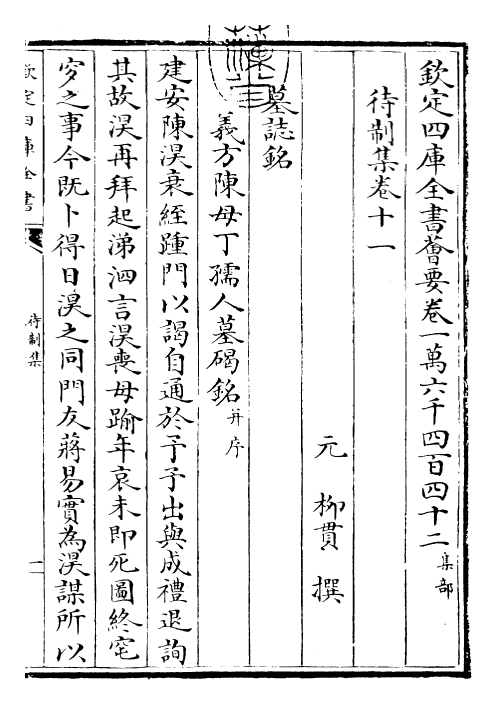 欽定四庫全書薈要卷一萬六千四百四十二集部
待制集卷十一
元 柳貫 撰
墓誌銘
義方陳母丁孺人墓碣銘并序
建安陳淏衰絰踵門以謁自通於予予出與成禮退詢
其故淏再拜起涕泗言淏喪母踰年哀未即死圖終窀
穸之事今既卜得日淏之同門友蔣易實為淏謀所以
欽定四庫全書
待制集
一